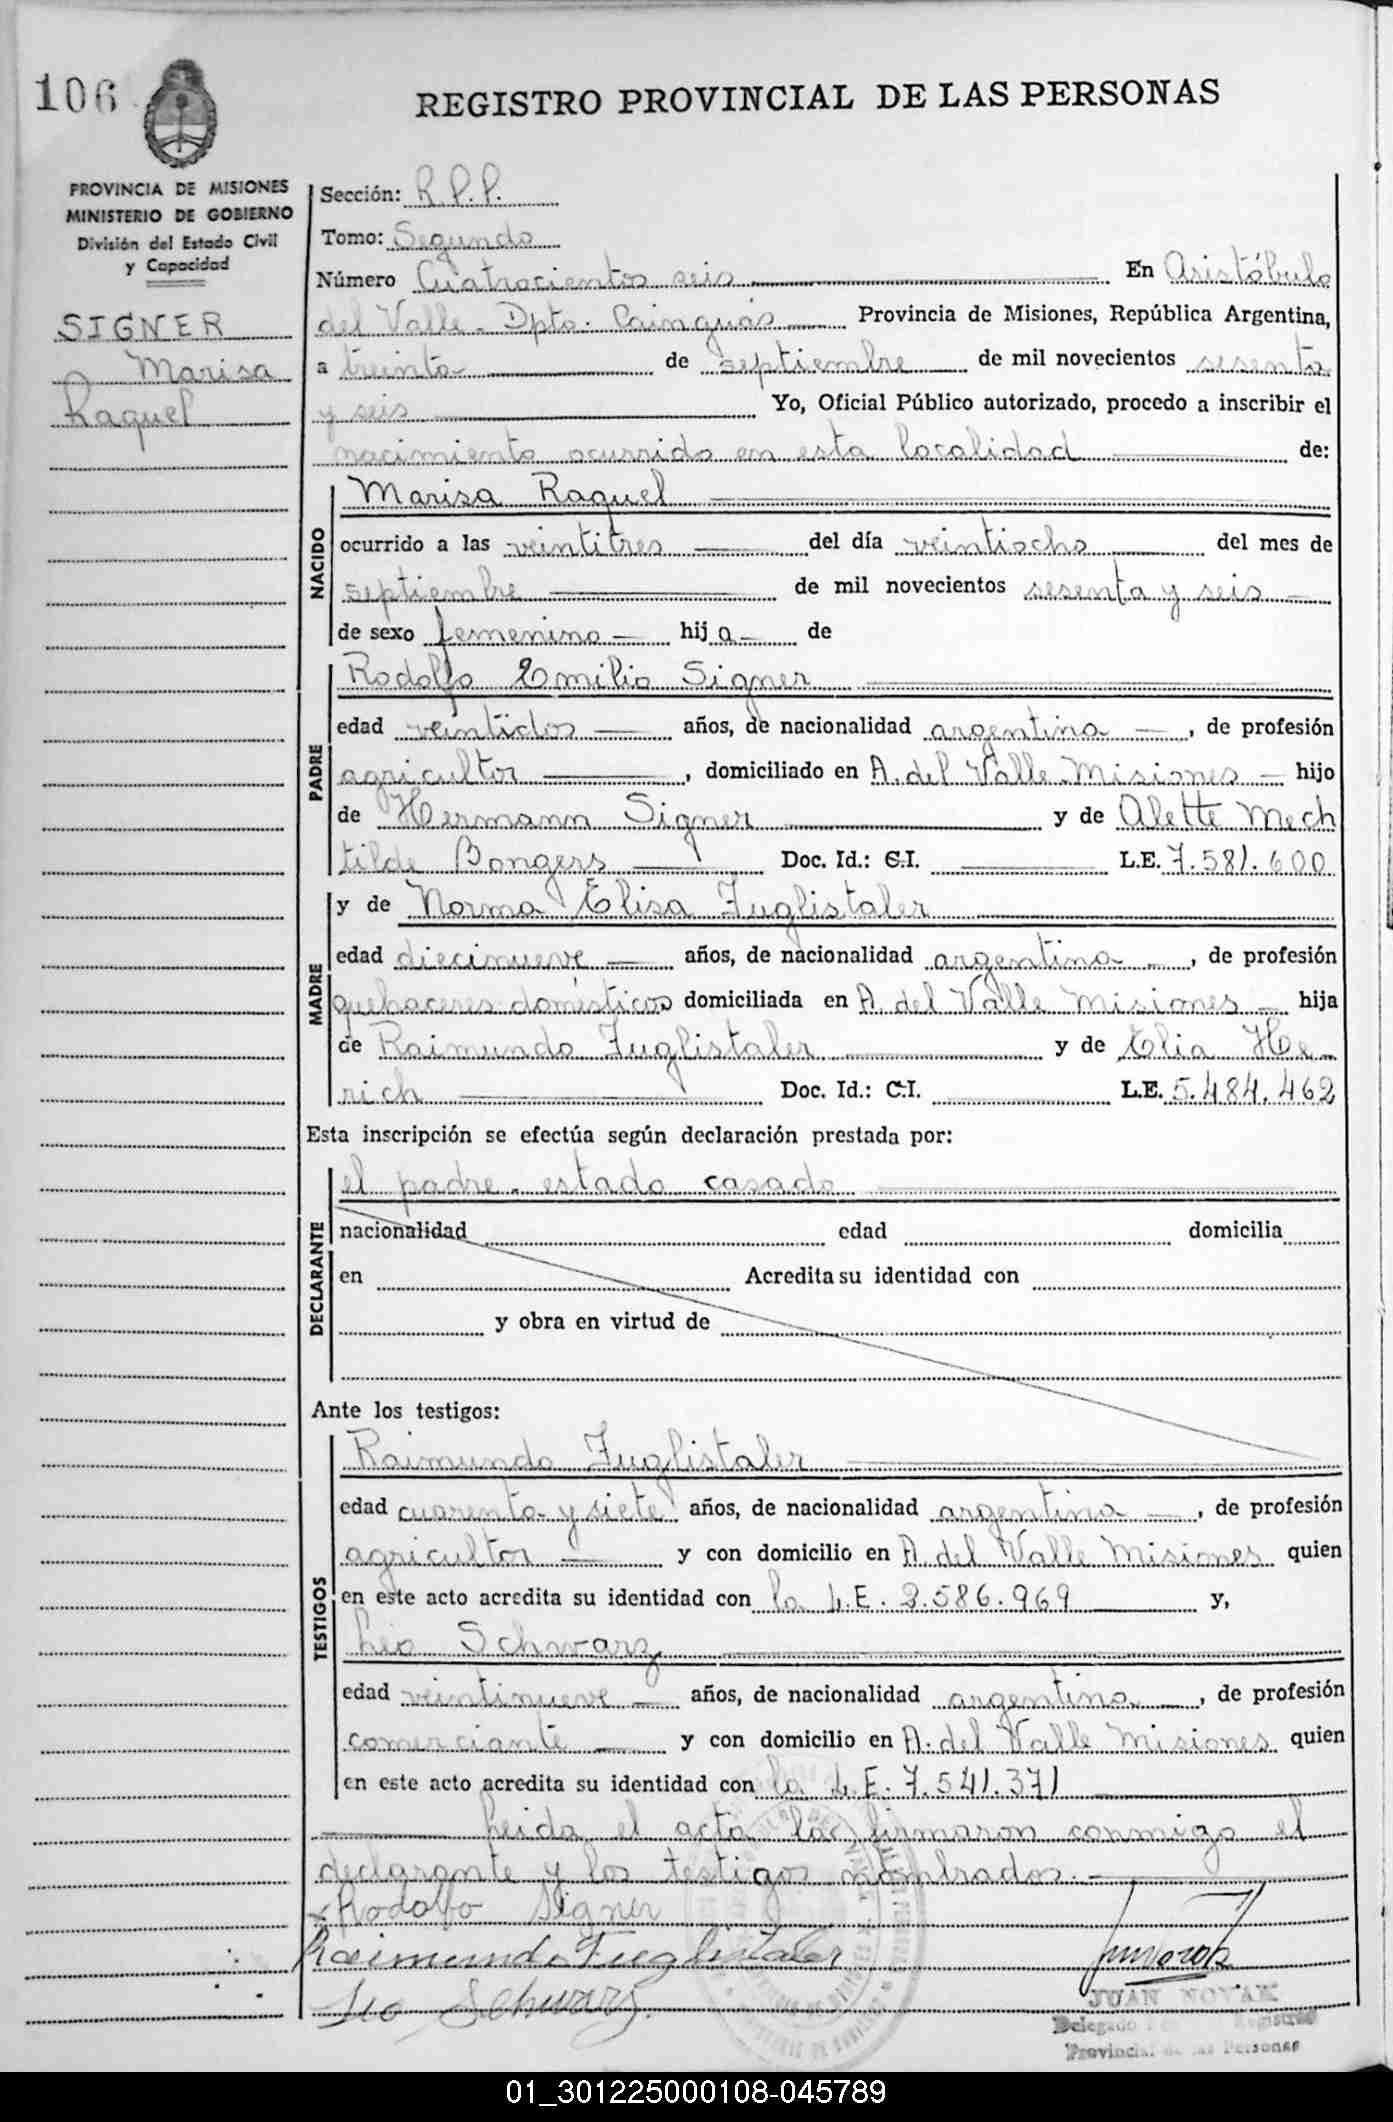 106
REGISTRO PROVINCIAL DE LAS PERSONAS
PROVINCIA DE MISIONES
MINISTERIO DE GOBIERNO
División del Estado Civil
y Capacidad
SIGNER
Marisa
Raquel
Sección: R.P.P.
Tomo: Segundo
Número Cuatrocientos seis En Aristóbulo
del Valle. Dpto. Cainguás Provincia de Misiones, República Argentina,
a treinta de septiembre de mil novecientos sesenta
y seis Yo, Oficial Público autorizado, procedo a inscribir el
nacimiento ocurrido en esta localidad de:
NACIDO
Marisa Raquel
ocurrido a las veintitres del día veintiocho del mes de
septiembre de mil novecientos sesenta y seis
de sexo femenino hij a de
PADRE
Rodolfo Emilio Signer
edad veintidos años, de nacionalidad argentina, de profesión
agricultor, domiciliado en A. del Valle Misiones hijo
de Hermann Signer y de Alette Mech
tilde Bongers Doc. Id.: C.I. L.E. 7.581.600
MADRE
y de Norma Elisa Fuglistaler
edad diecinueve años, de nacionalidad argentina, de profesión
quehaceres domésticos domiciliada en A. del Valle Misiones hija
de Raimundo Fuglistaler y de Elia He-
rich Doc. Id.: C.I. L.E. 5.484.462
Esta inscripción se efectúa según declaración prestada por:
DECLARANTE
el padre. estado casado
nacionalidad edad domicilia
en Acredita su identidad con
y obra en virtud de
Ante los testigos:
TESTIGOS
Raimundo Fuglistaler
edad cuarenta y siete años, de nacionalidad argentina, de profesión
agricultor y con domicilio en A. del Valle Misiones quien
en este acto acredita su identidad con la L.E. 3.586.969 y,
Lio Schwarz
edad veintinueve años, de nacionalidad argentina, de profesión
comerciante y con domicilio en A. del Valle Misiones quien
en este acto acredita su identidad con la L.E. 7.541.371
Leida el acta la firmaron conmigo el
declarante y los testigos nombrados.
Rodolfo Signer
Raimundo Fuglistaler
Lio Schwarz.
JUAN NOVAK
Delegado Registro
Provincial de las Personas
01_301225000108-045789